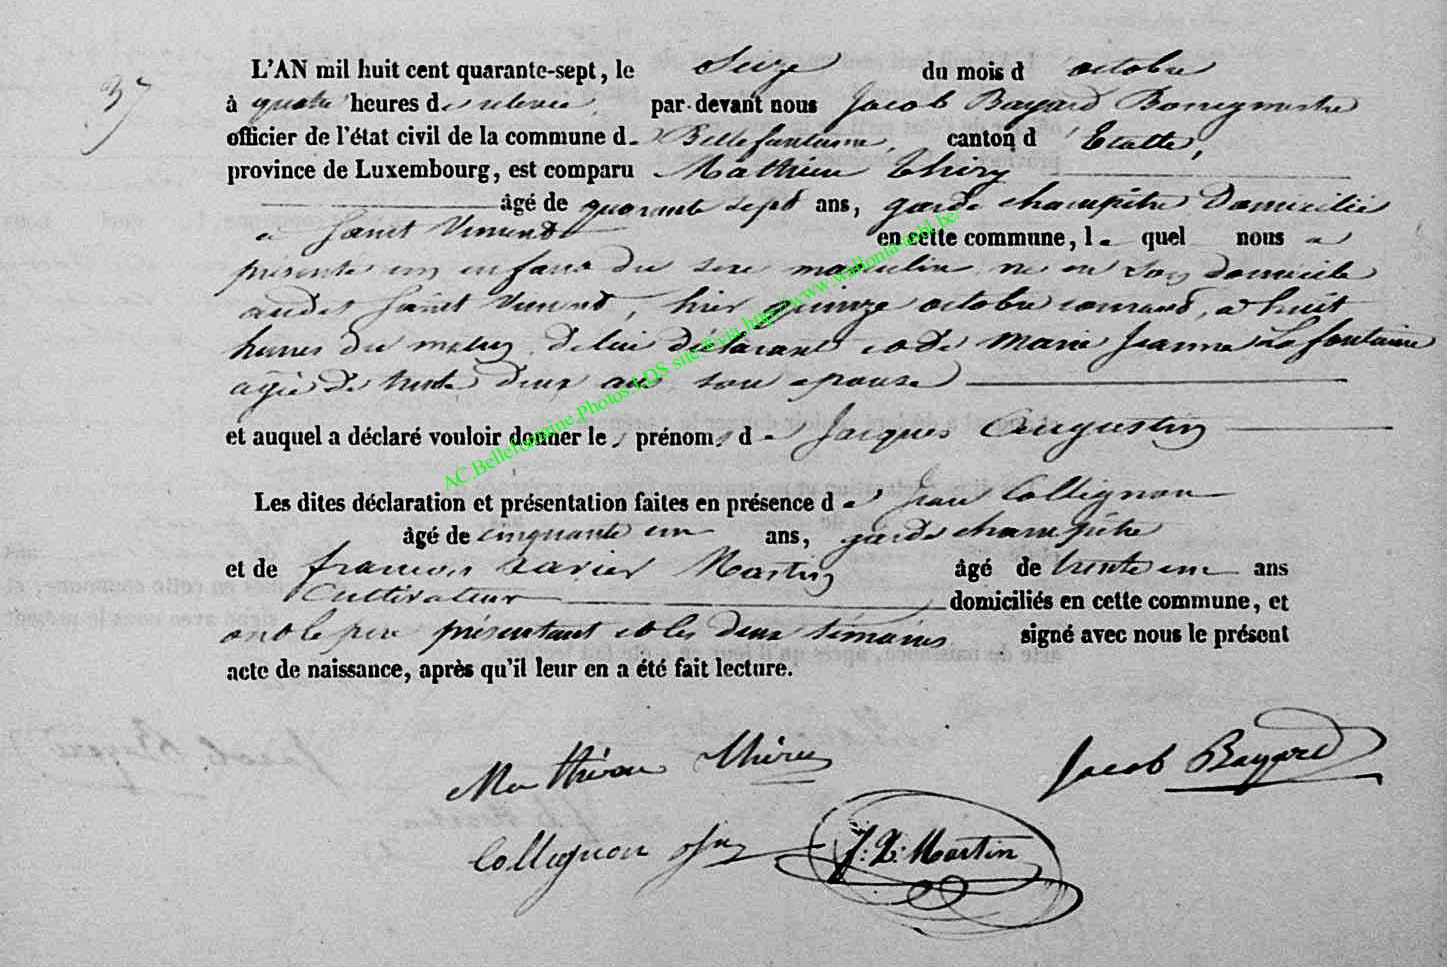 37
L'AN mil huit cent quarante-sept, le Seize du mois d'octobre
à quatre heures de relevée par-devant nous Jacob Bayard Bourgmestre
officier de l'état civil de la commune de Bellefontaine, canton d'Etalle,
province de Luxembourg, est comparu Mathieu Thiry
âgé de quarante sept ans, garde champêtre Domicilié
à Saint Vincent en cette commune, lequel nous a
présenté un enfant du sexe masculin né en son domicile
audit Saint Vincent, hier quinze octobre courant, à huit
heures du matin, de lui déclarant et de Marie Jeanne Lafontaine
agée de trente deux ans son epouse
et auquel a déclaré vouloir donner les prénoms de Jacques Augustin
Les dites déclaration et présentation faites en présence de Jean Collignon
âgé de cinquante un ans, garde champêtre
et de francois xavier Martin âgé de trente un ans
Cultivateur domiciliés en cette commune, et
ont le pere présentant et les deux témoins signé avec nous le présent
acte de naissance, après qu'il leur en a été fait lecture.
Mathieu Thiry Jacob Bayard
Collignon J: X: Martin
AC.Bellefontaine.Photos.LDS site.#via http://www.wallonia-asbl.be/